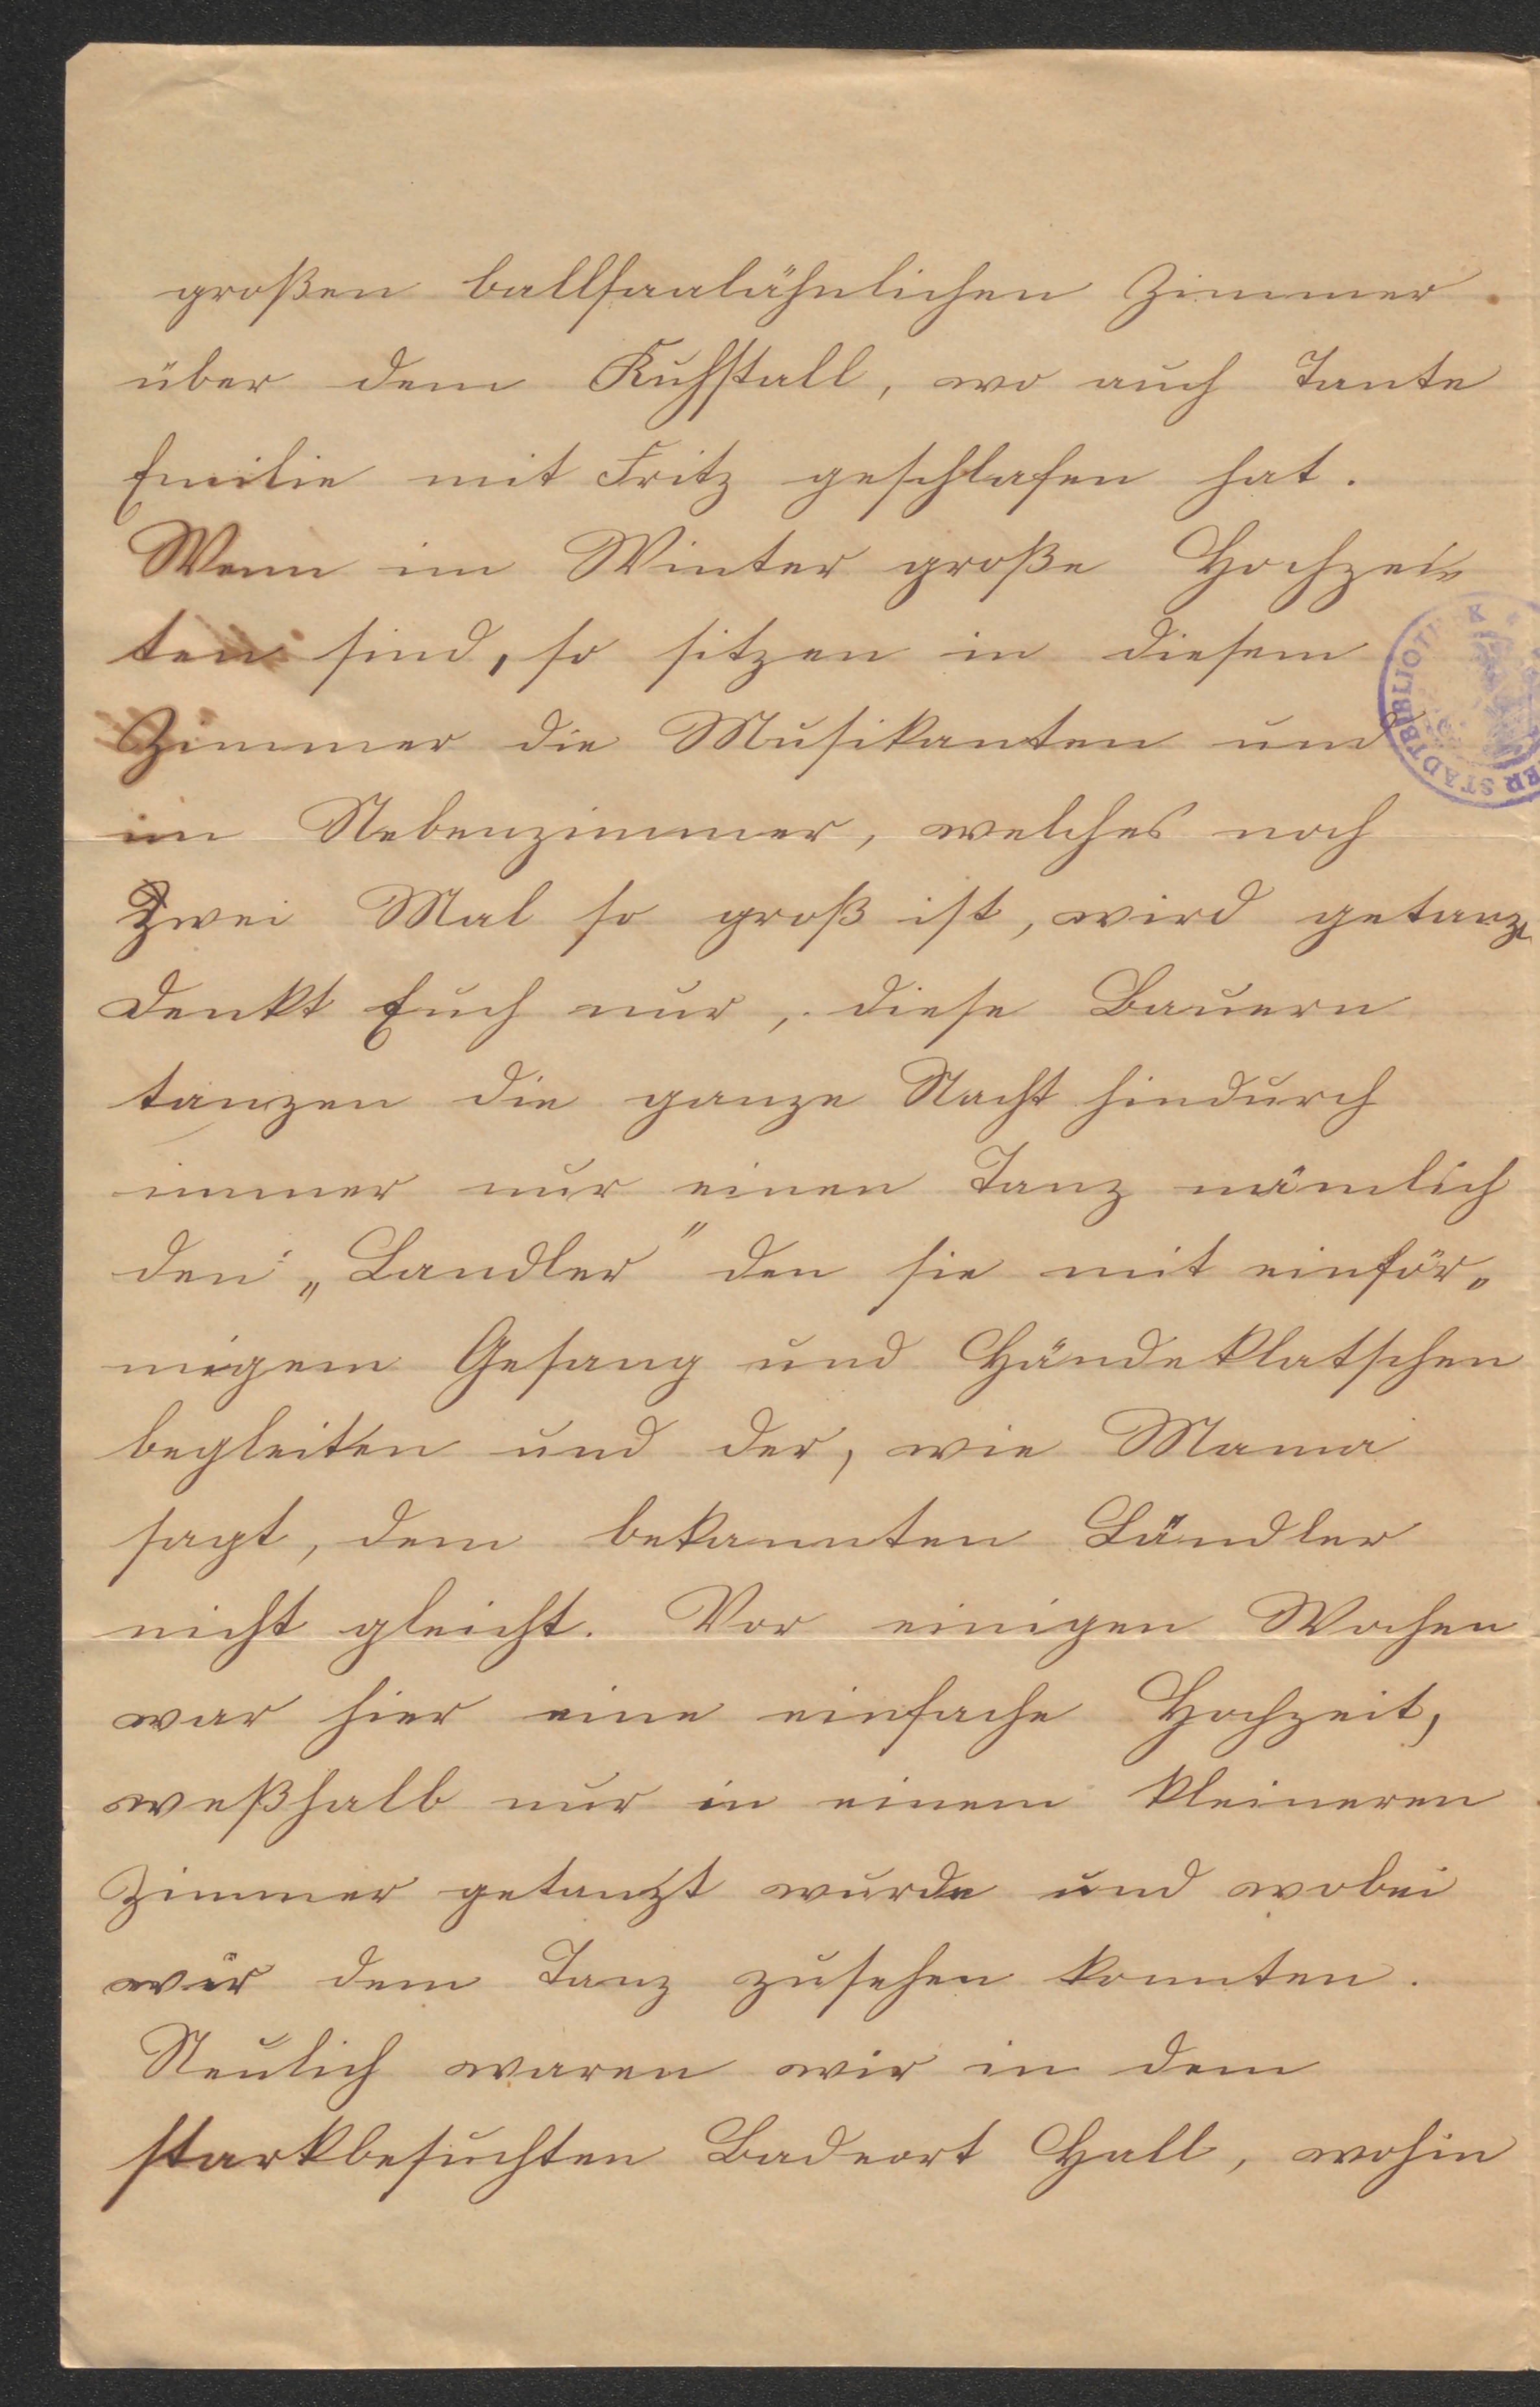 großen ballsaalähnlichen Zimmer
über dem Kuhstall, wo auch Tante
Emilie mit Fritz geschlafen hat.
Wenn im Winter große Hochzei„
ten sind, so sitzen in diesem
Zimmer die Musikanten und
im Nebenzimmer, welches noch
zwei Mal so groß ist, wird getanzt
Denkt Euch nur, diese Bauern
tanzen die ganze Nacht hindurch
immer nur einen Tanz nämlich
den „Landler" den sie mit einför„
migem Gesang und Händeklatschen
begleiten und der, wie Mama
sagt, dem bekannten Ländler
nicht gleicht. Vor einigen Wochen
war hier eine einfache Hochzeit,
weßhalb nur in einem kleineren
Zimmer getanzt wurde und wobei
wir dem Tanz zusehen konnten.
Neulich waren wir in dem
starkbesuchten Badeort Hall, wohin
STADTBIBLIOTHEK